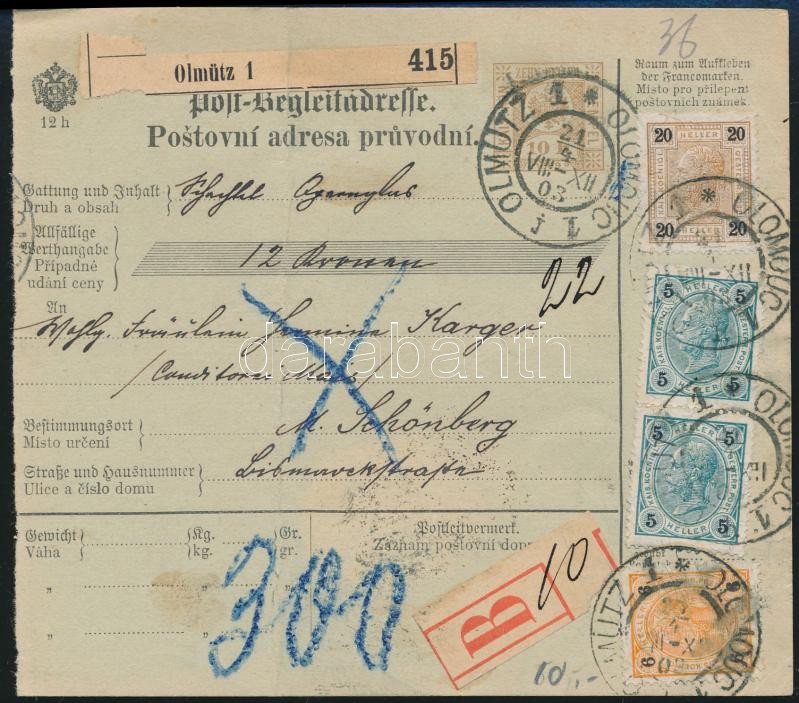 36
Olmütz 1 415
12 h
Post-Begleitadresse.
Poštovní adresa průvodní.
ZEHN HELLER
10
Raum zum Aufkleben
der Francomarken.
Místo pro přilepení
poštovních známek.
OLMÜTZ 1 * OLOMOUC 1
21
4
VIII-XII
03
20 HELLER 20
20 HELLER 20
Gattung und Inhalt
Druh a obsah
Schachtel
Allfällige
Werthangabe
Případné
udání ceny
12 Kronen
22
An
Wohlg. Fräulein Hermine Karger
/Conditorei
Bestimmungsort
Místo určení
M. Schönberg
Straße und Hausnummer
Ulice a číslo domu
Bismarckstraße
5 HELLER 5
5 HELLER 5
1 * OLOMOUC
5 HELLER 5
5 HELLER 5
1 * OLOMOUC 1
Gewicht
Váha
Kg.
kg.
Gr.
gr.
Postleitvermerk.
Záznam poštovní
300
R
10
10,-
OLMÜTZ 1 * OLOMOUC 1
6
darabanth